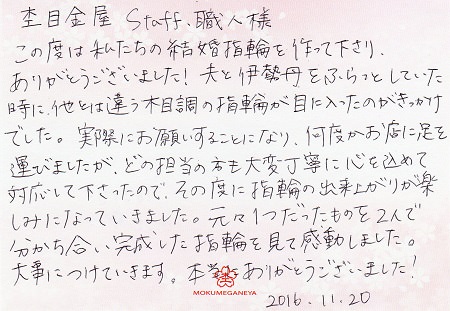 杢目金屋 Staff、職人様
この度は私たちの結婚指輪を作って下さり、
ありがとうございました！夫と伊勢丹をふらっとしていた
時に、他とは違う木目調の指輪が目に入ったのがきっかけ
でした。実際にお願いすることになり、何度かお店に足を
運びましたが、どの担当の方も大変丁寧に心を込めて
対応して下さったので、その度に指輪の出来上がりが楽
しみになっていきました。元々1つだったものを2人で
分かち合い完成した指輪を見て感動しました。
大事につけていきます。本当にありがとうございました！
MOKUMEGANEYA
2016.11.20